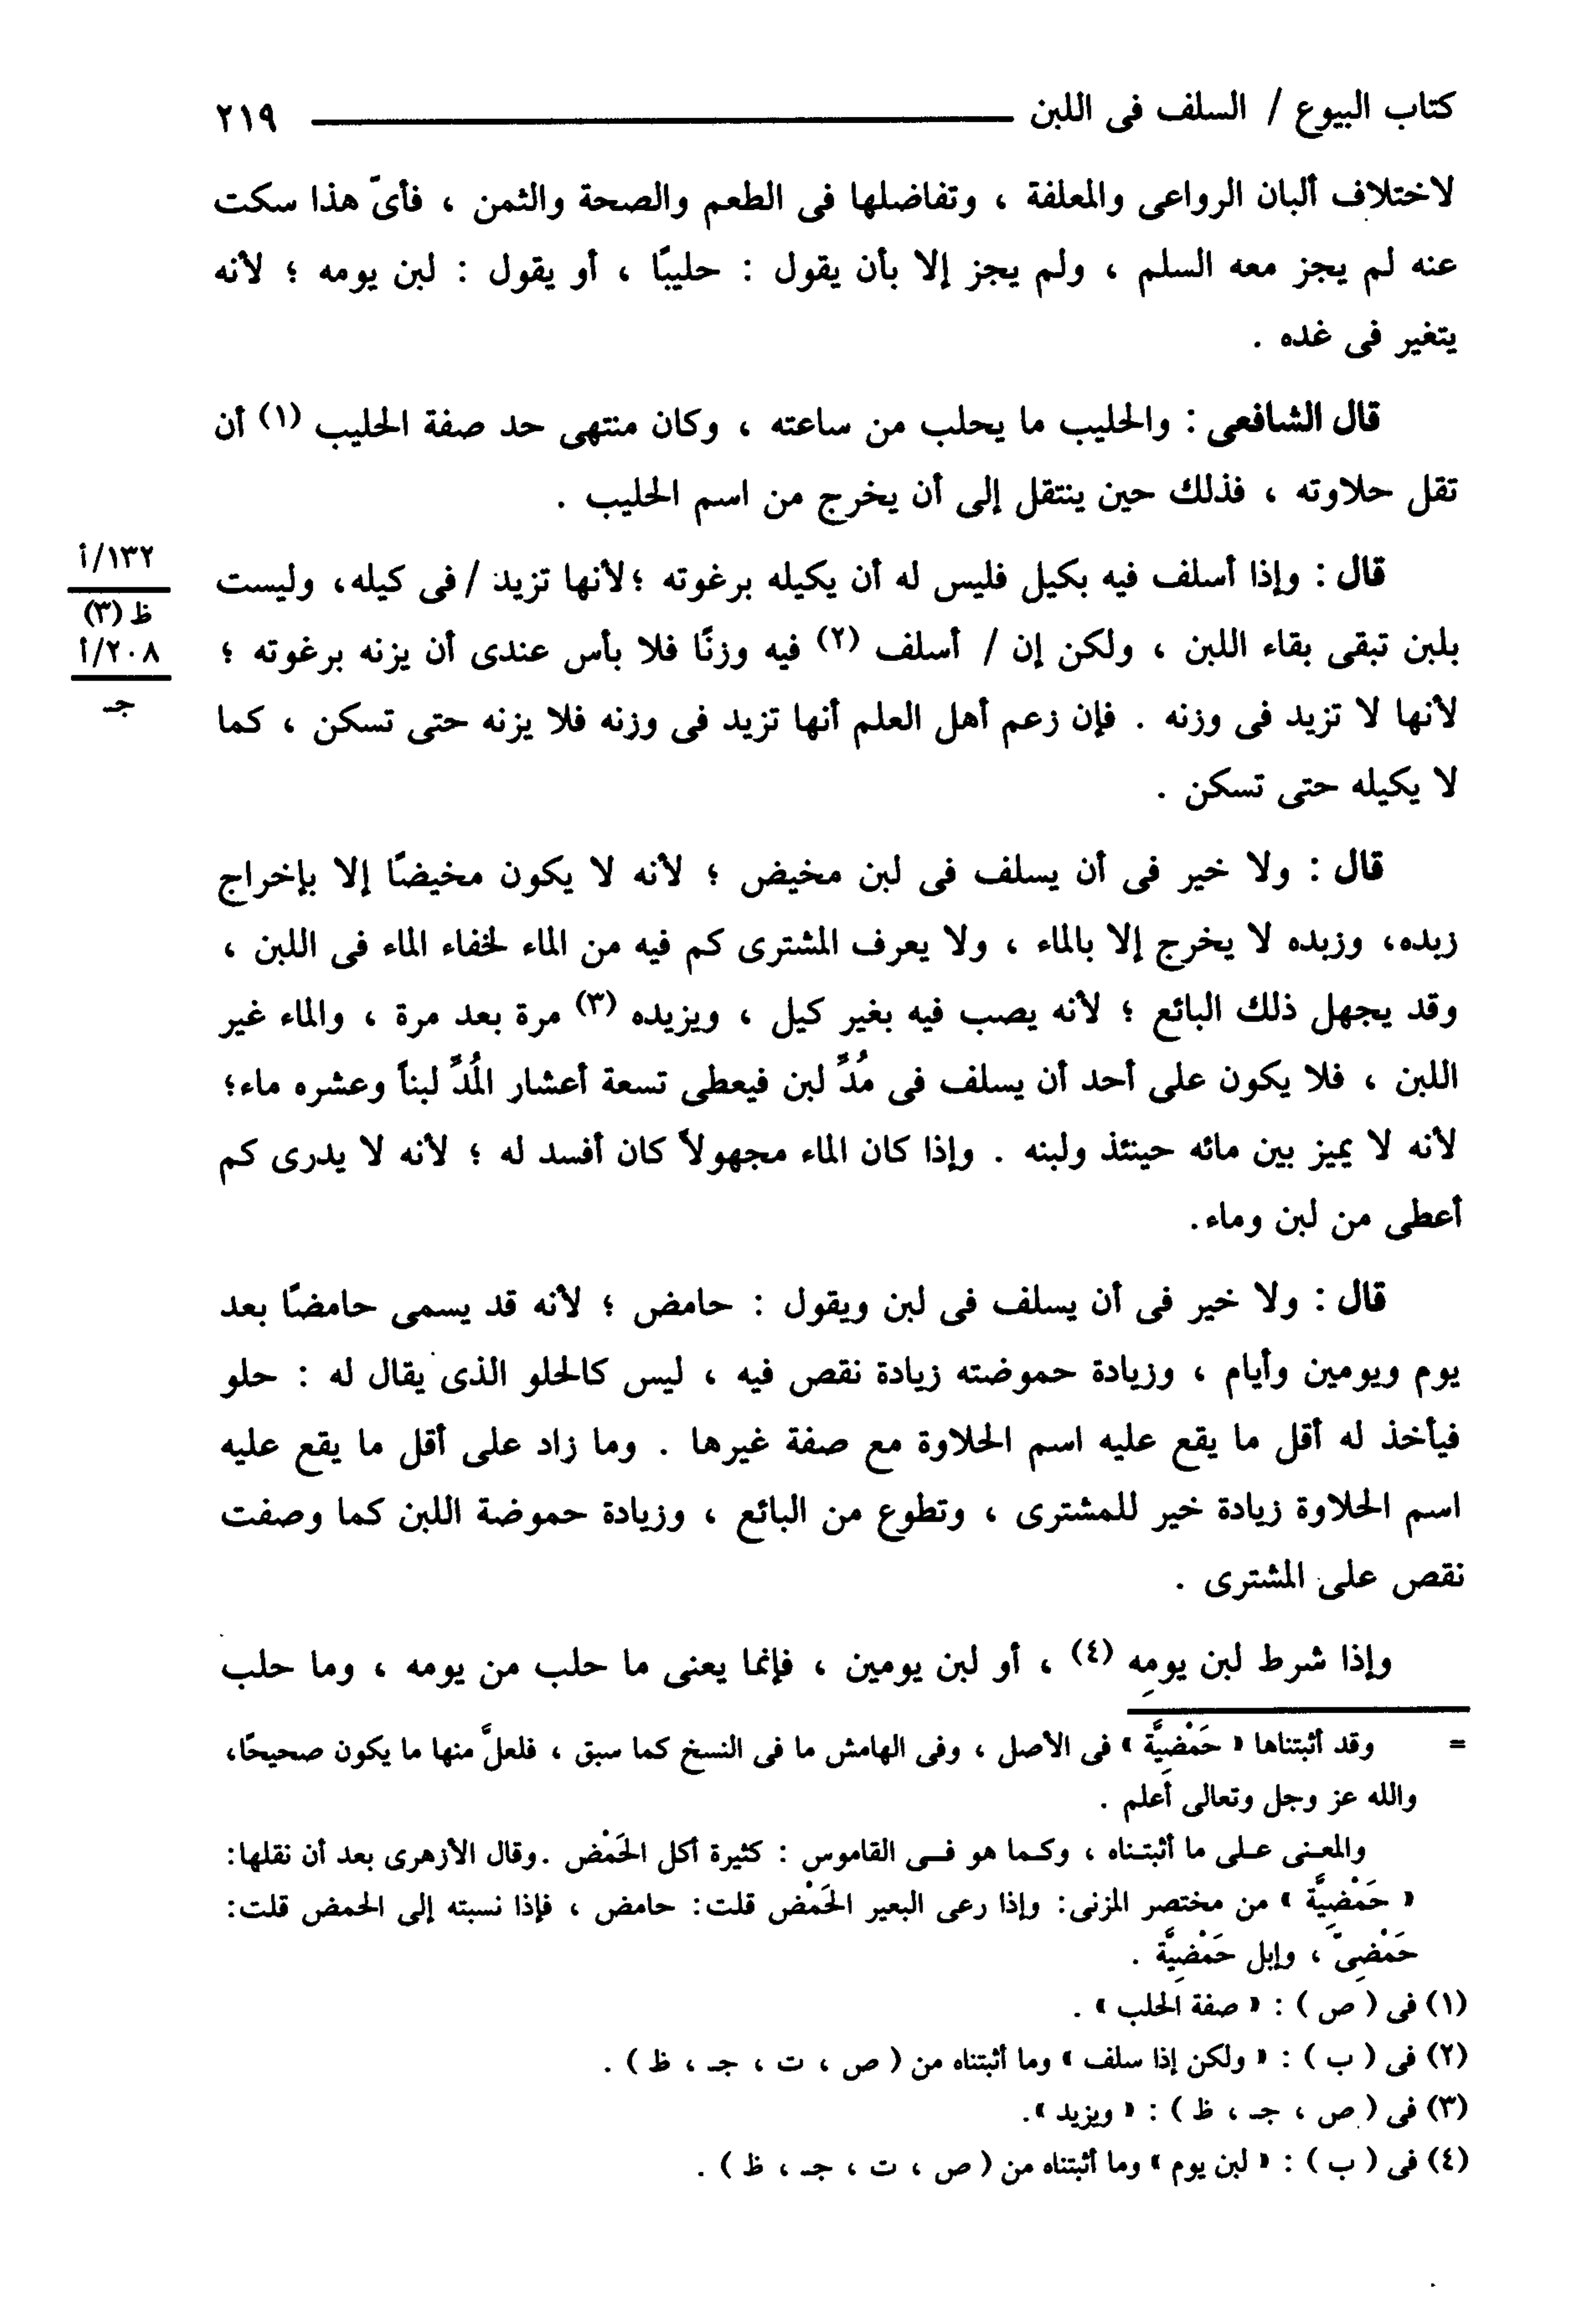 كتاب البيوع / السلف فى اللبن ــــــــــــــــــ ٢١٩
لاختلاف ألبان الرواعى والمعلفة ، وتفاضلها فى الطعم والصحة والثمن ، فأىّ هذا سكت
عنه لم يجز معه السلم ، ولم يجز إلا بأن يقول : حليبًا ، أو يقول : لبن يومه ؛ لأنه
يتغير فى غده .
قال الشافعى : والحليب ما يحلب من ساعته ، وكان منتهى حد صفة الحليب (١) أن
تقل حلاوته ، فذلك حين ينتقل إلى أن يخرج من اسم الحليب .
قال : وإذا أسلف فيه بكيل فليس له أن يكيله برغوته ؛ لأنها تزيد / فى كيله، وليست
بلبن تبقى بقاء اللبن ، ولكن إن / أسلف (٢) فيه وزنًا فلا بأس عندى أن يزنه برغوته ؛
لأنها لا تزيد فى وزنه . فإن زعم أهل العلم أنها تزيد فى وزنه فلا يزنه حتى تسكن ، كما
لا يكيله حتى تسكن .
١٣٢/أ
ظ (٣)
٢٠٨/أ
جـ
قال : ولا خير فى أن يسلف فى لبن مخيض ؛ لأنه لا يكون مخيضًا إلا بإخراج
زبده، وزبده لا يخرج إلا بالماء ، ولا يعرف المشترى كم فيه من الماء لخفاء الماء فى اللبن ،
وقد يجهل ذلك البائع ؛ لأنه يصب فيه بغير كيل ، ويزيده (٣) مرة بعد مرة ، والماء غير
اللبن ، فلا يكون على أحد أن يسلف فى مُدِّ لبن فيعطى تسعة أعشار المُدِّ لبناً وعشره ماء؛
لأنه لا يميز بين مائه حينئذ ولبنه . وإذا كان الماء مجهولاً كان أفسد له ؛ لأنه لا يدرى كم
أعطى من لبن وماء.
قال : ولا خير فى أن يسلف فى لبن ويقول : حامض ؛ لأنه قد يسمى حامضًا بعد
يوم ويومين وأيام ، وزيادة حموضته زيادة نقص فيه ، ليس كالحلو الذى يقال له : حلو
فيأخذ له أقل ما يقع عليه اسم الحلاوة مع صفة غيرها . وما زاد على أقل ما يقع عليه
اسم الحلاوة زيادة خير للمشترى ، وتطوع من البائع ، وزيادة حموضة اللبن كما وصفت
نقص على المشترى .
وإذا شرط لبن يومِه (٤) ، أو لبن يومين ، فإنما يعنى ما حلب من يومه ، وما حلب
= وقد أثبتناها « حَمْضِيَّة » فى الأصل ، وفى الهامش ما فى النسخ كما سبق ، فلعلَّ منها ما يكون صحيحًا،
والله عز وجل وتعالى أعلم .
والمعنى على ما أثبتناه ، وكما هو فى القاموس : كثيرة أكل الحَمْض .وقال الأزهرى بعد أن نقلها:
« حَمْضِيَّة » من مختصر المزنى: وإذا رعى البعير الحَمْض قلت: حامض ، فإذا نسبته إلى الحمض قلت:
حَمْضِىّ ، وإبل حَمْضِيَّة .
(١) فى ( ص ) : « صفة الحلب » .
(٢) فى ( ب ) : « ولكن إذا سلف » وما أثبتناه من ( ص ، ت ، جـ ، ظ ) .
(٣) فى ( ص ، جـ ، ظ ) : « ويزيد ».
(٤) فى ( ب ) : « لبن يوم » وما أثبتناه من ( ص ، ت ، جـ ، ظ ) .